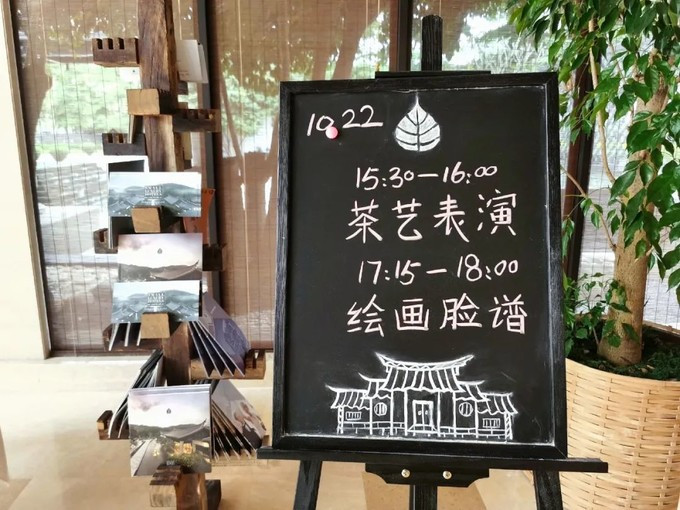 10.22
15:30—16:00
茶艺表演
17:15—18:00
绘画脸谱